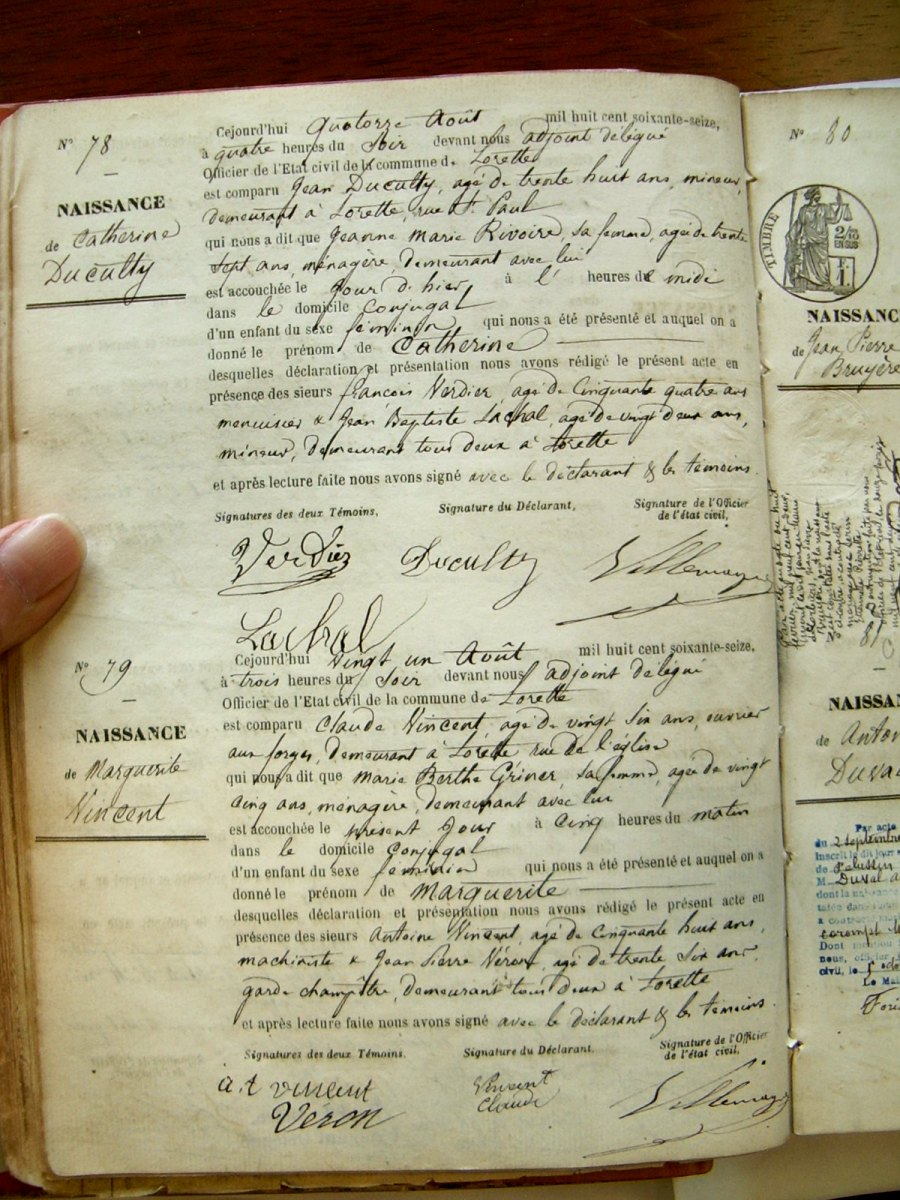 N° 78
NAISSANCE
de Catherine
Duculty
Cejourd'hui Quatorze Août mil huit cent soixante-seize,
à quatre heures du Soir devant nous adjoint délégué
Officier de l'Etat civil de la commune de Lorette
est comparu Jean Duculty, agé de trente huit ans, mineur,
demeurant à Lorette, rue St Paul
qui nous a dit que Jeanne Marie Rivoire, sa femme, agée de trente
sept ans, ménagère, demeurant avec lui
est accouchée le jour d'hier, à l' heures de midi
dans le domicile Conjugal
d'un enfant du sexe féminin qui nous a été présenté et auquel on a
donné le prénom de Catherine
desquelles déclaration et présentation nous avons rédigé le présent acte en
présence des sieurs François Verdier, agé de Cinquante quatre ans
menuisier & Jean Baptiste Lachal, agé de vingt deux ans,
mineur, demeurant tous deux à Lorette
et après lecture faite nous avons signé avec le déclarant & les témoins.
Signatures des deux Témoins, Signature du Déclarant, Signature de l'Officier
de l'état civil,
Verdier Duculty Villemagne
Lachal
N° 79
NAISSANCE
de Marguerite
Vincent
Cejourd'hui Vingt un Août mil huit cent soixante-seize,
à trois heures du Soir devant nous adjoint délégué
Officier de l'Etat civil de la commune de Lorette
est comparu Claude Vincent, agé de vingt Six ans, ouvrier
aux forges, demeurant à Lorette rue de l'église
qui nous a dit que Marie Berthe Griner sa femme, agée de vingt
Cinq ans, ménagère, demeurant avec lui
est accouchée le présent Jour à Cinq heures du matin
dans le domicile Conjugal
d'un enfant du sexe féminin qui nous a été présenté et auquel on a
donné le prénom de Marguerite
desquelles déclaration et présentation nous avons rédigé le présent acte en
présence des sieurs Antoine Vincent, agé de Cinquante huit ans,
machiniste & Jean Pierre Véron, agé de trente Six ans,
garde champêtre, demeurant tous deux à Lorette
et après lecture faite nous avons signé avec le déclarant & les témoins.
Signatures des deux Témoins. Signature du Déclarant. Signature de l'Officier
de l'état civil,
a.t vincent Vincent
Claude Villemagne
Véron
N° 80
TIMBRE
2/10
EN SUS
NAISSANC
de Jean Pierre
Bruyère
81
NAISSAN
de Anton
Duva
Par acte
du 2 septembre
inscrit le dit jour
de Pelussin
M. Duval
Dont mention
nous, officier
civil, le
Le Mai